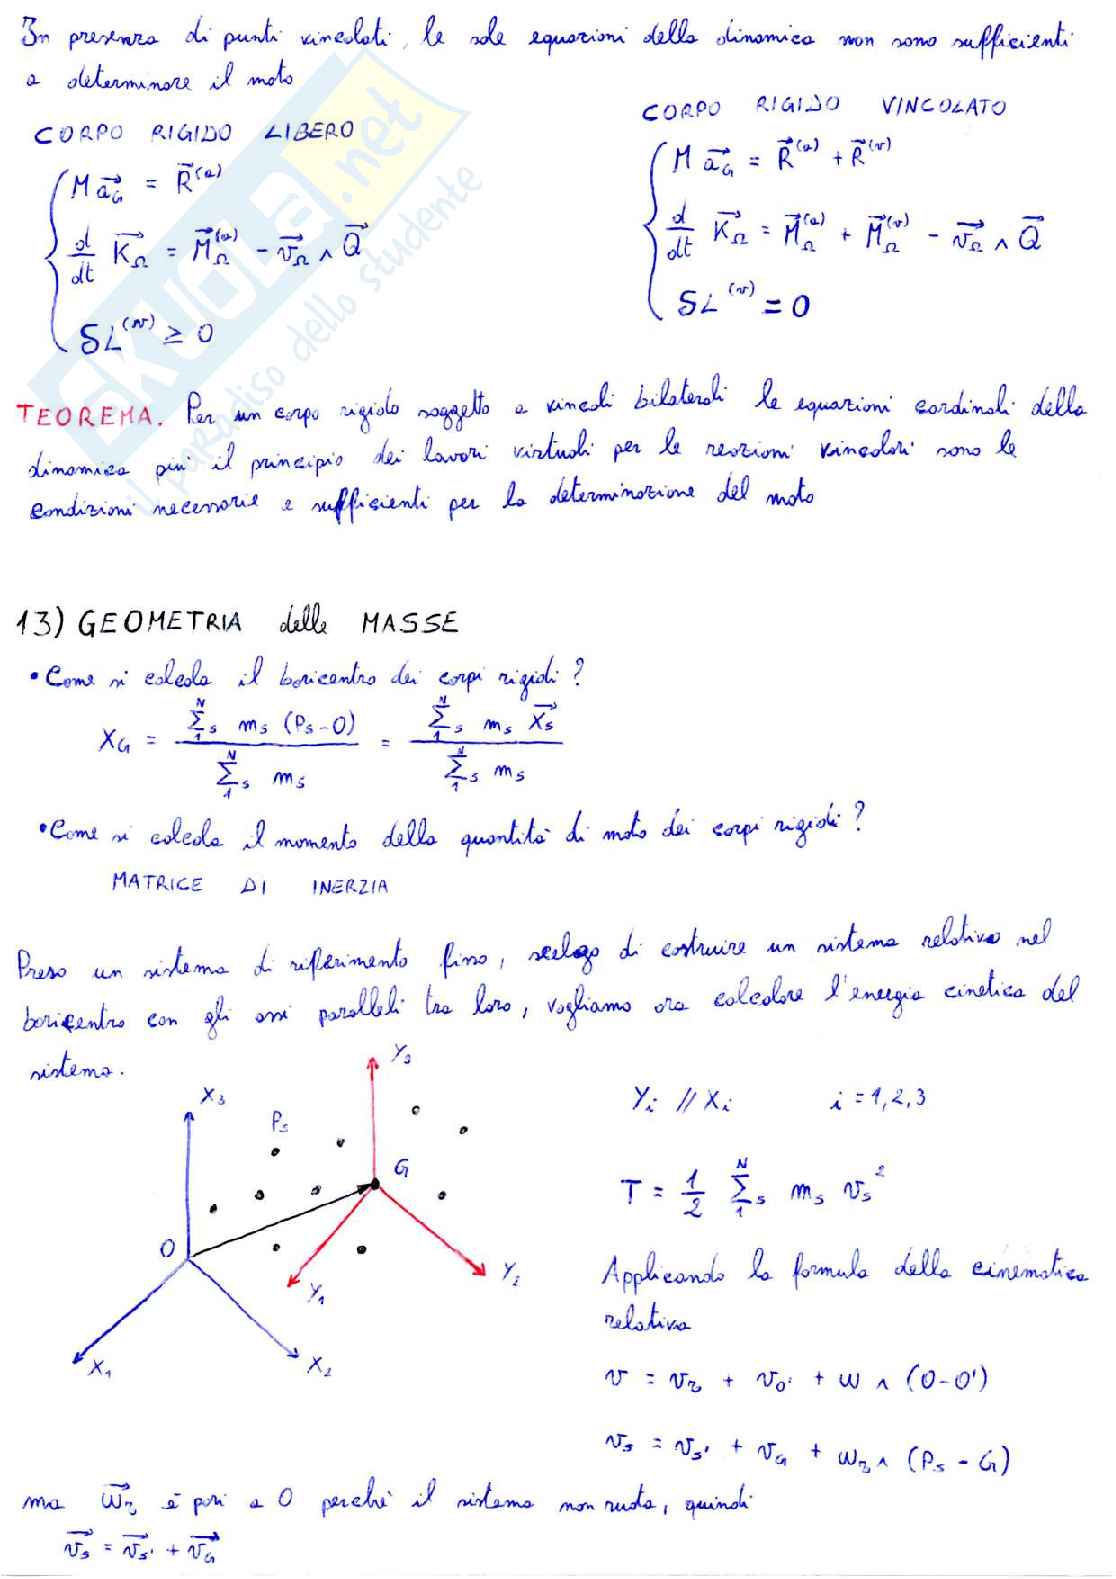 In presenza di punti vincolati, le sole equazioni della dinamica non sono sufficienti
a determinare il moto
CORPO RIGIDO LIBERO
M a_G = R^(a)
d/dt K_Ω = M_Ω^(a) - v_Ω ∧ Q
δL^(v) ≥ 0
CORPO RIGIDO VINCOLATO
M a_G = R^(a) + R^(v)
d/dt K_Ω = M_Ω^(a) + M_Ω^(v) - v_Ω ∧ Q
δL^(v) = 0
TEOREMA. Per un corpo rigido soggetto a vincoli bilaterali le equazioni cardinali della
dinamica più il principio dei lavori virtuali per le reazioni vincolari sono le
condizioni necessarie e sufficienti per la determinazione del moto
13) GEOMETRIA delle MASSE
• Come si calcola il baricentro dei corpi rigidi?
X_G = Σ_1^N_s m_s (P_s - O) / Σ_1^N_s m_s = Σ_1^N_s m_s X_s / Σ_1^N_s m_s
• Come si calcola il momento della quantità di moto dei corpi rigidi?
MATRICE DI INERZIA
Preso un sistema di riferimento fisso, scelgo di costruire un sistema relativo nel
baricentro con gli assi paralleli tra loro, vogliamo ora calcolare l'energia cinetica del
sistema.
X_3
P_s
Y_3
G
O
Y_1
Y_2
X_1
X_2
Y_i // X_i i = 1,2,3
T = 1/2 Σ_1^N_s m_s v_s^2
Applicando la formula della cinematica
relativa
v = v_r + v_O' + ω ∧ (O-O')
v_s = v_s' + v_G + ω_r ∧ (P_s - G)
ma ω_r è pari a 0 perché il sistema non ruota, quindi
v_s = v_s' + v_G
SKUOLA.net
il paradiso dello studente